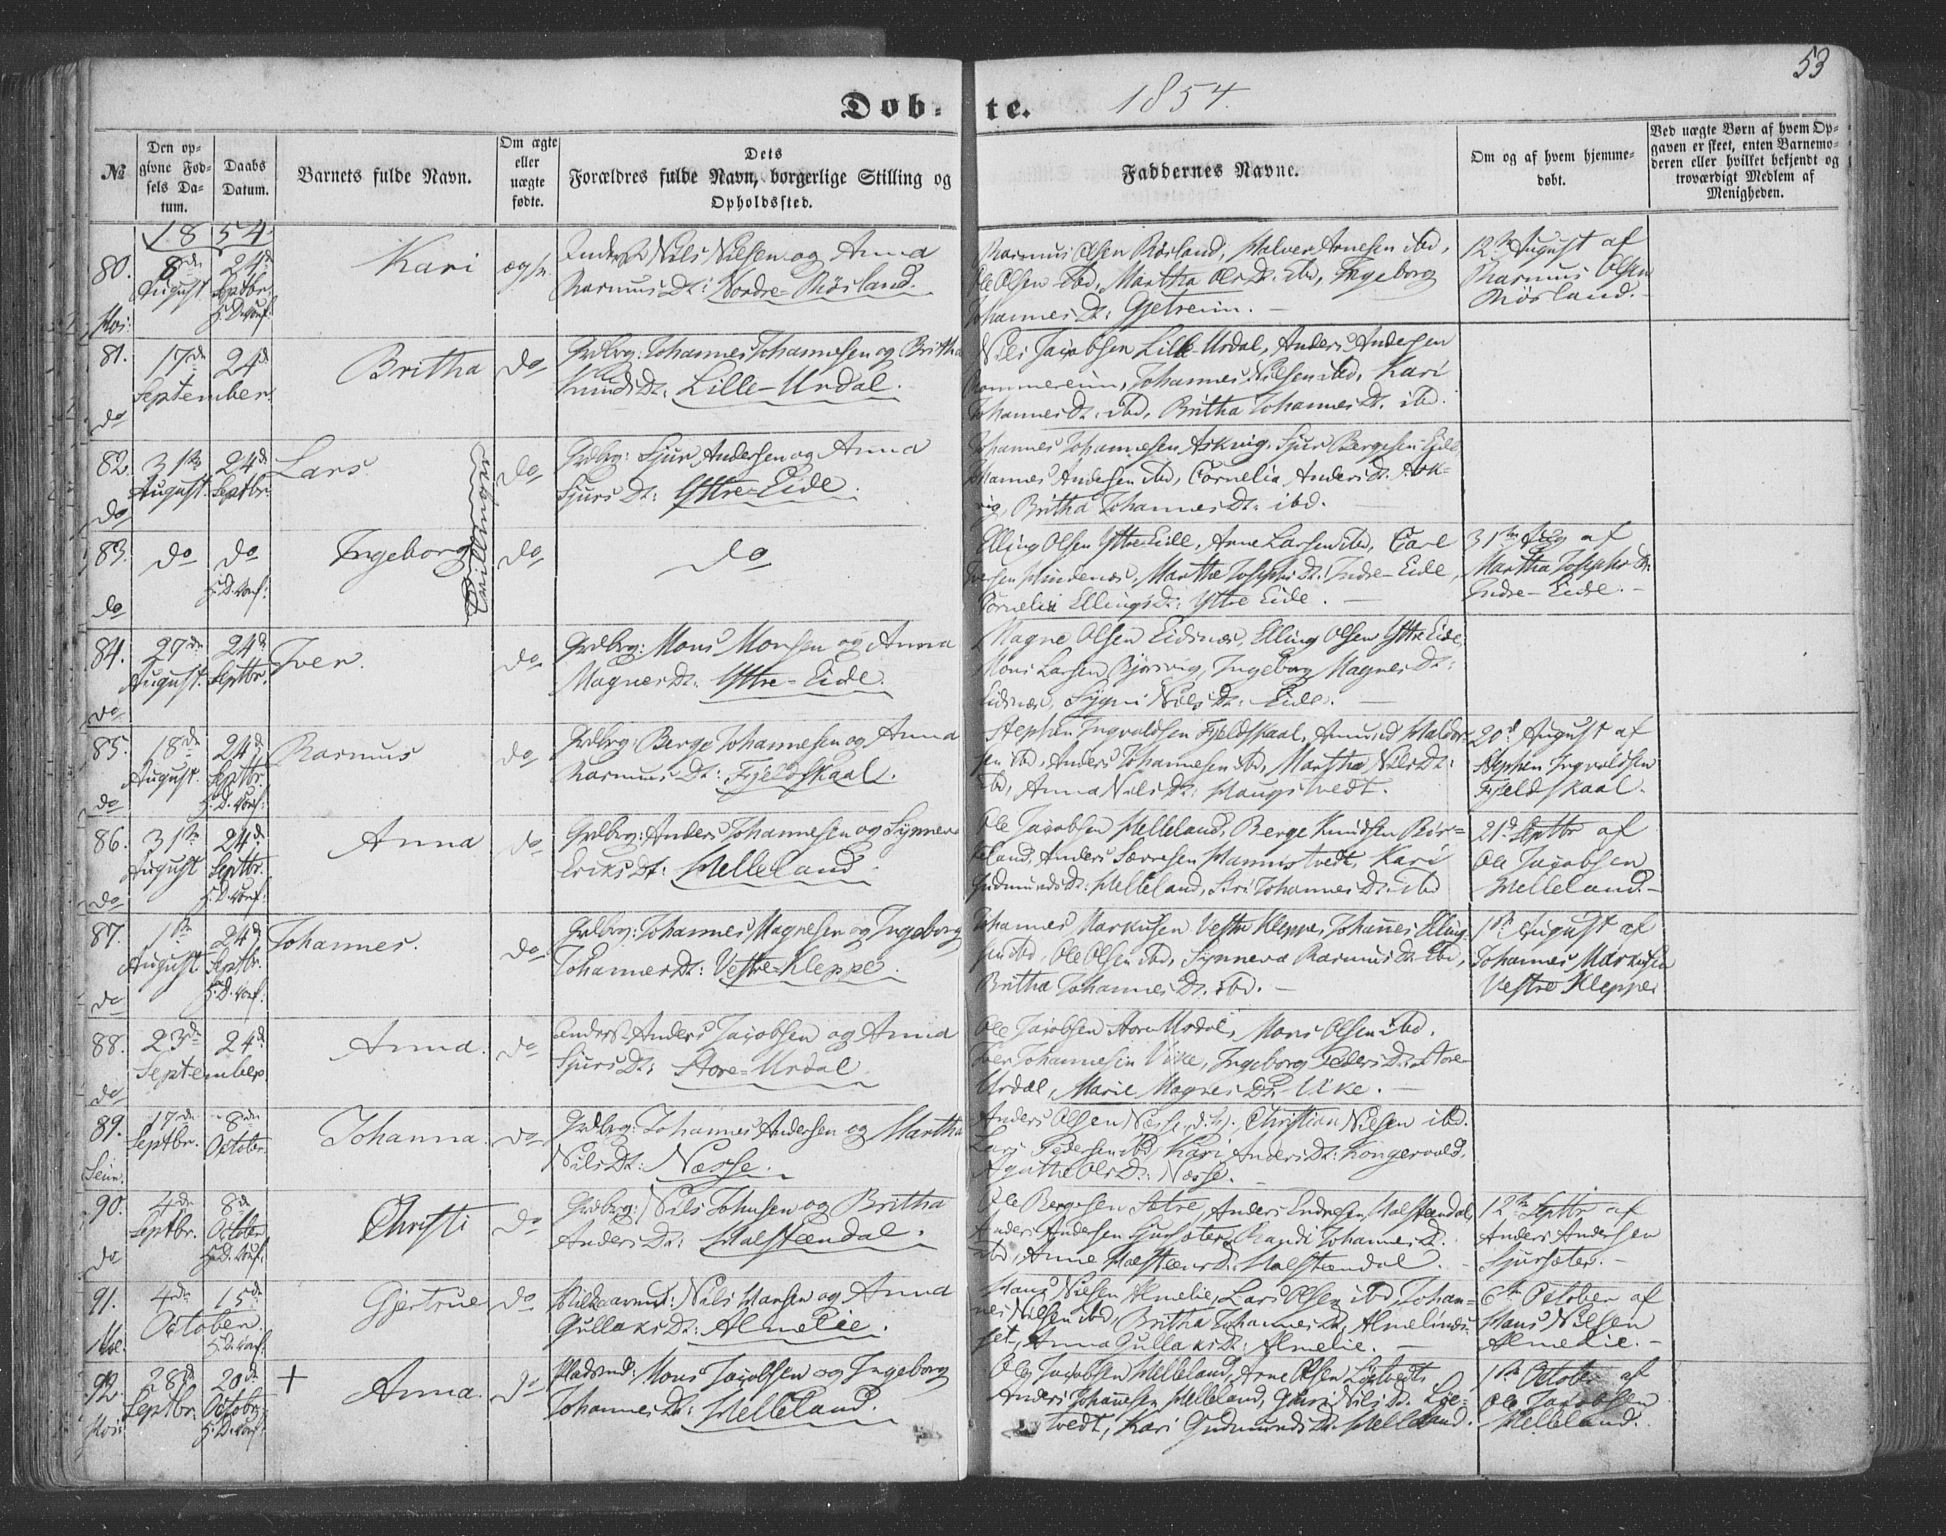 53
Døb- te. 1854.
№
Den opgivne Fødsels Datum.
Daabs Datum.
Barnets fulde Navn.
Om ægte eller uægte fødte.
Dets Forældres fulde Navn, borgerlige Stilling og Opholdssted.
Faddernes Navne.
Om og af hvem hjemmedøbt.
Ved uægte Børn af hvem Opgaven er skeet, enten Barnemoderen eller hvilket bekjendt og troværdigt Medlem af Menigheden.
1854
80. 8de August 24de Septbr. H.D. conf: Kari
Nils Nilsen og Anna
Rasmus Dt: Nordre-Røsland.
Rasmus Olsen Røsland, Halver Arnesen ibd,
Ole Olsen ibd, Martha Ols Dt: ibd, Ingeborg
Johannes Dt: Gjetreim.
12te August af
Rasmus Olsen
Røsland.
81. 17de 24d September. Britha do
do
Grdbrg: Johannes Johannesen og Britha
Knuds Dt: Lille-Urdal.
Nils Jacobsen Lille-Urdal, Anders Andersen
Johannes Nilsen ibd, Kari
Johannes Dt: ibd, Britha Johannes Dt. ibd.
82. 31te August. 24d Septbr. Lars do
do
Tvillinger
Grdbrg: Sjur Andersen og Anna
Sjurs Dt: Yttre-Eide.
Johannes Johannesen Askvig, Sjur Bergesen Eide
Hannes Andersen ibd, Cornelia Anders Dt. Ask-
vig, Britha Johannes Dt: ibd.
83. do do H.D. conf: Ingeborg do do
do
Elling Olsen Yttre Eide, Arne Larsen ibd, Carl
Martha Josephs Dt: Indre-Eide,
Cornelia Ellings Dt: Yttre Eide.
31te Aug af
Martha Josephs Dt:
Indre-Eide.
84. 27de August. 24d Septbr. Iver. do
do
Grdbrg: Mons Monsen og Anna
Magnes Dt: Yttre-Eide.
Magne Olsen Eidsnæs, Elling Olsen Yttre Eide,
Mons Larsen Bjørsvig, Ingeborg Magnes Dt:
Eidsnæs, Sygni Nils Dt: Eide.
85. 18de August. 24d Septbr. H.D. conf: Rasmus do
do
Grdbrg: Berge Johannesen og Anna
Rasmus Dt: Fjeldskaal.
Stephen Ingvaldsen Fjeldskaal, Amund Haldor-
sen ibd, Anders Johannesen ibd, Martha Nils Dt:
ibd, Anna Nils Dt: Haugstvedt.
20d August af
Stephen Ingvaldsen
Fjeldskaal.
86. 31te August 24d Septbr. H.D. conf: Anna do
do
Grdbrg: Anders Johannesen og Synneva
Eriks Dt: Helleland.
Ole Jacobsen Helleland, Berge Knudsen Røs-
land, Anders Særresen Hannistvedt, Kari
Gudmunds Dt: Helleland, Siri Johannes Dt: ibd
21d Septbr af
Ole Jacobsen
Helleland.
87. 1te August. 24d Septbr. H.D. conf: Johannes. do
do
Grdbrg: Johannes Magnesen og Ingeborg
Johannes Dt: Vestre-Kleppe.
Johannes Markusen Vestre Kleppe, Johannes Elling-
sen ibd, Ole Olsen ibd, Synneva Rasmus Dt: ibd,
Britha Johannes Dt. ibd.
1te August af
Johannes Markusen
Vestre Kleppe
88. 23de 24d September Anna. do
do
Anders Jacobsen og Anna
Sjurs Dt: Store-Urdal.
Ole Jacobsen Store Urdal, Mons Olsen ibd.
Iver Johannesen Vike, Ingeborg Peders Dt: Store-
Urdal, Marie Magnes Dt: Vike.
89. 17de Septbr. 8de October Johanna. do
Grdbrg: Johannes Andersen og Martha
Nils Dt: Næsse.
Anders Olsen Næsse, Christian Nilsen ibd.
Lars Pedersen ibd, Kari Anders Dt: Kongervold,
Agathe Ols Dt: Næsse.
90. 4de Septbr. 8de October H.D. conf: Christi do
do
Grdbrg: Nils Johnsen og Britha
Anders Dt: Halstændal.
Ole Bergesen Sætre, Anders Endresen Halstændal,
Anders Andersen Sjursæter, Randi Johannes Dt:
ibd, Anne Halsteens Dt: Halstændal.
12te Septbr af
Anders Andersen
Sjursæter.
91. 4de 15de October H.D. conf: Gjertrue do
Nils Hansen og Anna
Gullaks Dt: Almelie.
Hans Nilsen Almelie, Lars Olsen ibd, Johan-
nes Nilsen ibd, Britha Johannes Dt: Almelinæs-
set, Anna Gullaks Dt: Almelie.
6te October af
Hans Nilsen
Almelie.
92 28d Septbr. 20d October H.D. conf: + Anna. do
Pladsmd: Mons Jacobsen og Ingeborg
Johannes Dt: Helleland.
Ole Jacobsen Helleland, Arne Olsen Løtvedt,
Anders Johannesen Helleland, Guri Nils Dt. Løt-
tvedt, Kari Gudmunds Dt. Helleland.
1te October af
Ole Jacobsen
Helleland.